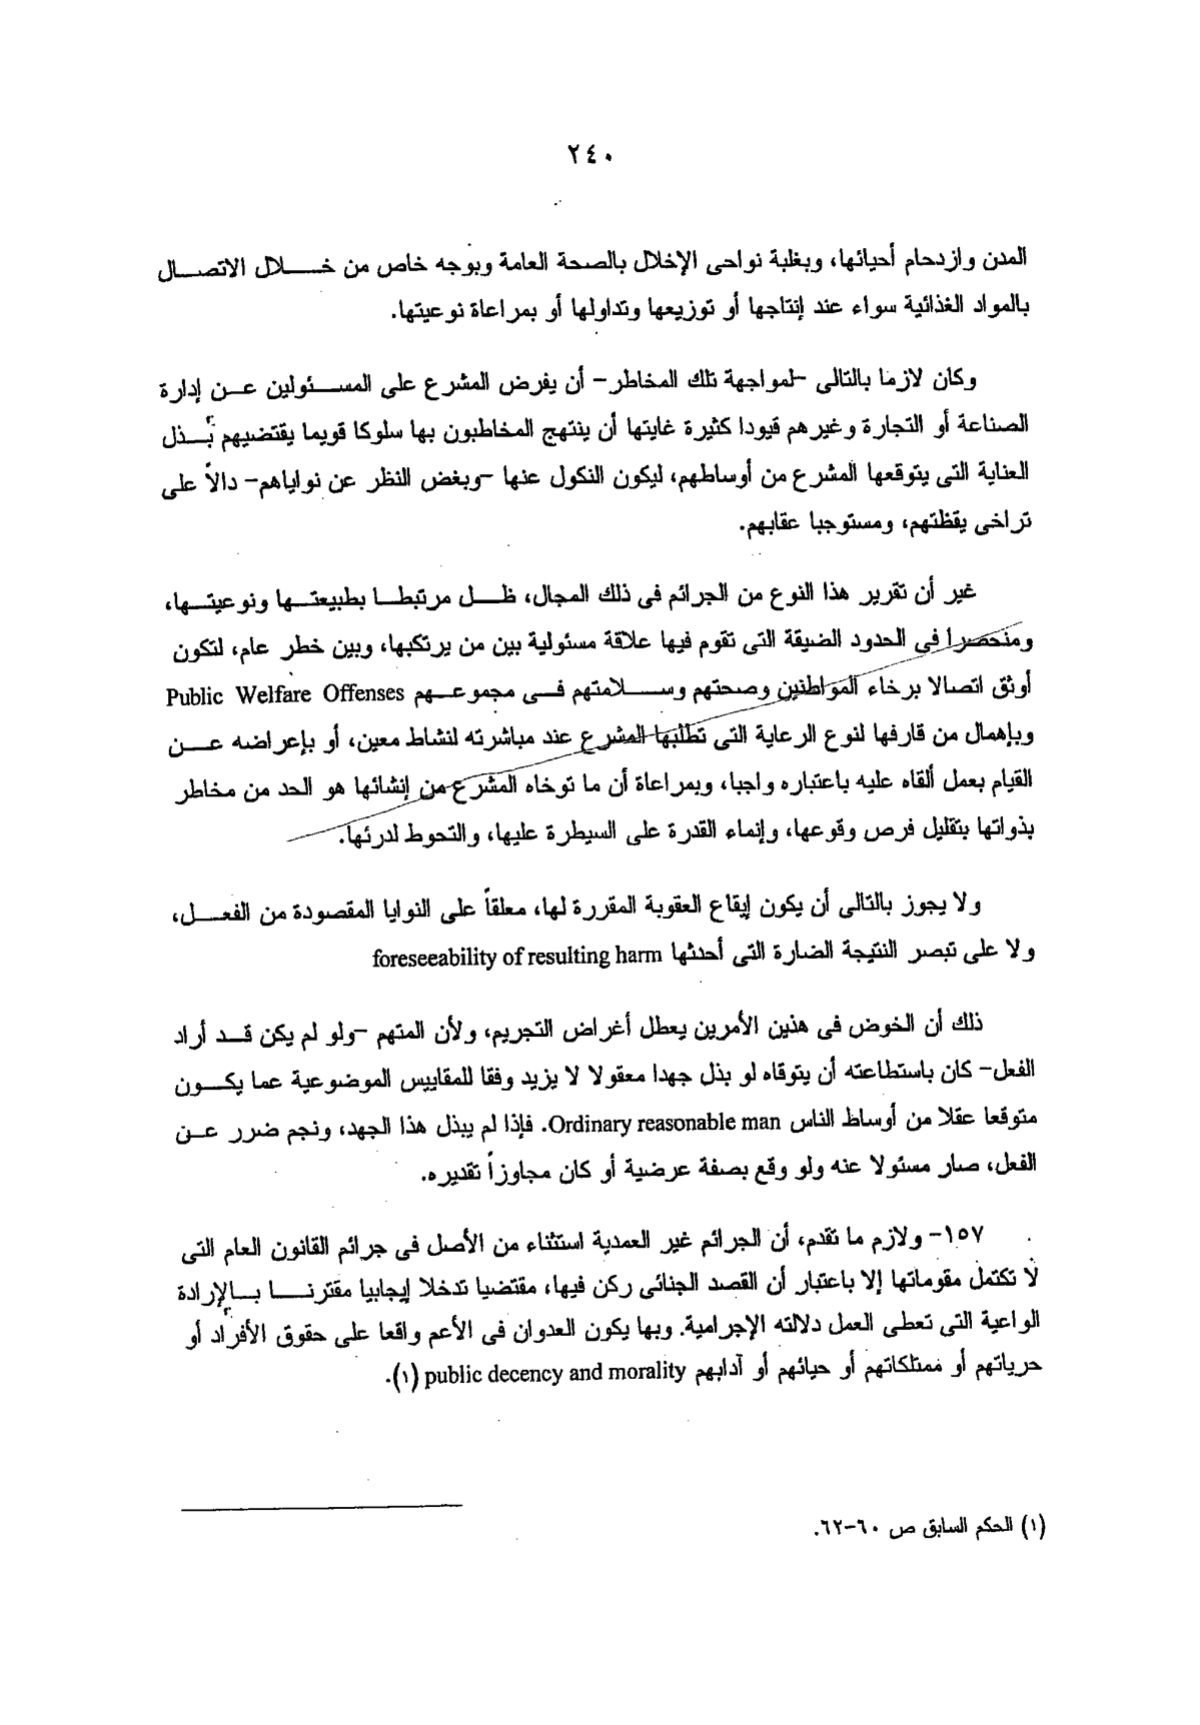 ٢٤٠
المدن وازدحام أحيائها، وبغلبة نواحى الإخلال بالصحة العامة وبوجه خاص من خلال الاتصال
بالمواد الغذائية سواء عند إنتاجها أو توزيعها وتداولها أو بمراعاة نوعيتها.
وكان لازما بالتالى -لمواجهة تلك المخاطر- أن يفرض المشرع على المسئولين عن إدارة
الصناعة أو التجارة وغيرهم قيودا كثيرة غايتها أن ينتهج المخاطبون بها سلوكا قويما يقتضيهم بذل
العناية التى يتوقعها المشرع من أوساطهم، ليكون النكول عنها -وبغض النظر عن نواياهم- دالاً على
تراخى يقظتهم، ومستوجبا عقابهم.
غير أن تقرير هذا النوع من الجرائم فى ذلك المجال، ظل مرتبطا بطبيعتها ونوعيتها،
ومنحصرا فى الحدود الضيقة التى تقوم فيها علاقة مسئولية بين من يرتكبها، وبين خطر عام، لتكون
أوثق اتصالا برخاء المواطنين وصحتهم وسلامتهم فى مجموعهم Public Welfare Offenses
وبإهمال من قارفها لنوع الرعاية التى تطلبها المشرع عند مباشرته لنشاط معين، أو بإعراضه عن
القيام بعمل ألقاه عليه باعتباره واجبا، وبمراعاة أن ما توخاه المشرع من إنشائها هو الحد من مخاطر
بذواتها بتقليل فرص وقوعها، وإنماء القدرة على السيطرة عليها، والتحوط لدرئها.
ولا يجوز بالتالى أن يكون إيقاع العقوبة المقررة لها، معلقاً على النوايا المقصودة من الفعل،
ولا على تبصر النتيجة الضارة التى أحدثها foreseeability of resulting harm
ذلك أن الخوض فى هذين الأمرين يعطل أغراض التجريم، ولأن المتهم -ولو لم يكن قد أراد
الفعل- كان باستطاعته أن يتوقاه لو بذل جهدا معقولا لا يزيد وفقا للمقاييس الموضوعية عما يكون
متوقعا عقلا من أوساط الناس Ordinary reasonable man. فإذا لم يبذل هذا الجهد، ونجم ضرر عن
الفعل، صار مسئولا عنه ولو وقع بصفة عرضية أو كان مجاوزاً تقديره.
١٥٧- ولازم ما تقدم، أن الجرائم غير العمدية استثناء من الأصل فى جرائم القانون العام التى
لا تكتمل مقوماتها إلا باعتبار أن القصد الجنائى ركن فيها، مقتضيا تدخلا إيجابيا مقترنا بالإرادة
الواعية التى تعطى العمل دلالته الإجرامية. وبها يكون العدوان فى الأعم واقعا على حقوق الأفراد أو
حرياتهم أو ممتلكاتهم أو حيائهم أو آدابهم public decency and morality (١).
(١) الحكم السابق ص ٦٠-٦٢.